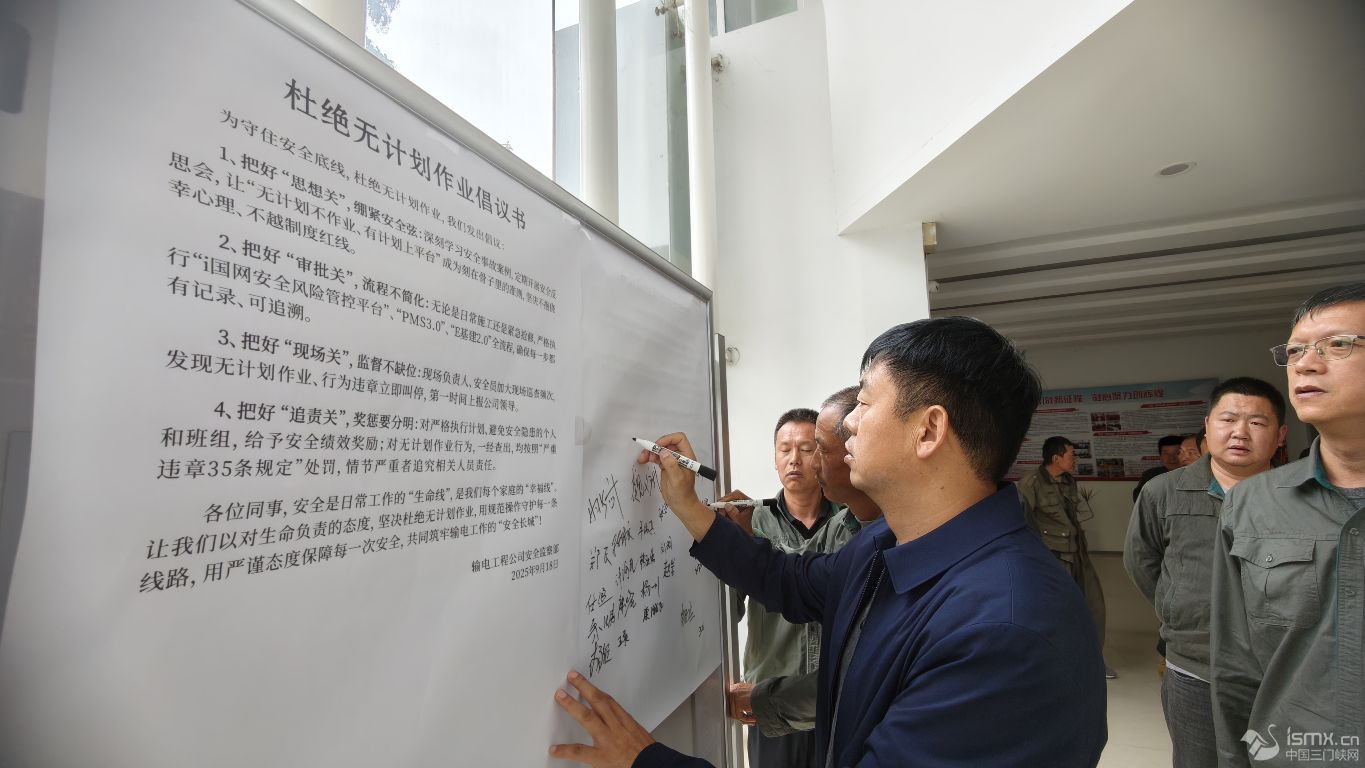 杜绝无计划作业倡议书
为守住安全底线，杜绝无计划作业，我们发出倡议：
1、把好“思想关”，绷紧安全弦：深刻学习安全事故案例，定期开展安全反
思会，让“无计划不作业、有计划上平台”成为刻在骨子里的准则，坚决不抱侥
幸心理、不越制度红线。
2、把好“审批关”，流程不简化：无论是日常施工还是紧急抢修，严格执
行“i国网安全风险管控平台”、“PMS3.0”、“E基建2.0”全流程，确保每一步都
有记录、可追溯。
3、把好“现场关”，监督不缺位：现场负责人、安全员加大现场巡查频次，
发现无计划作业、行为违章立即叫停，第一时间上报公司领导。
4、把好“追责关”，奖惩要分明：对严格执行计划、避免安全隐患的个人
和班组，给予安全绩效奖励；对无计划作业行为，一经查出，均按照“严重
违章35条规定”处罚，情节严重者追究相关人员责任。
各位同事，安全是日常工作的“生命线”，是我们每个家庭的“幸福线”。
让我们以对生命负责的态度，坚决杜绝无计划作业，用规范操作守护每一条
线路，用严谨态度保障每一次安全，共同筑牢输电工作的“安全长城”！
输电工程公司安全监察部
2025年9月18日
新征程 凝心聚力创辉煌
ismx.cn
中国三门峡网